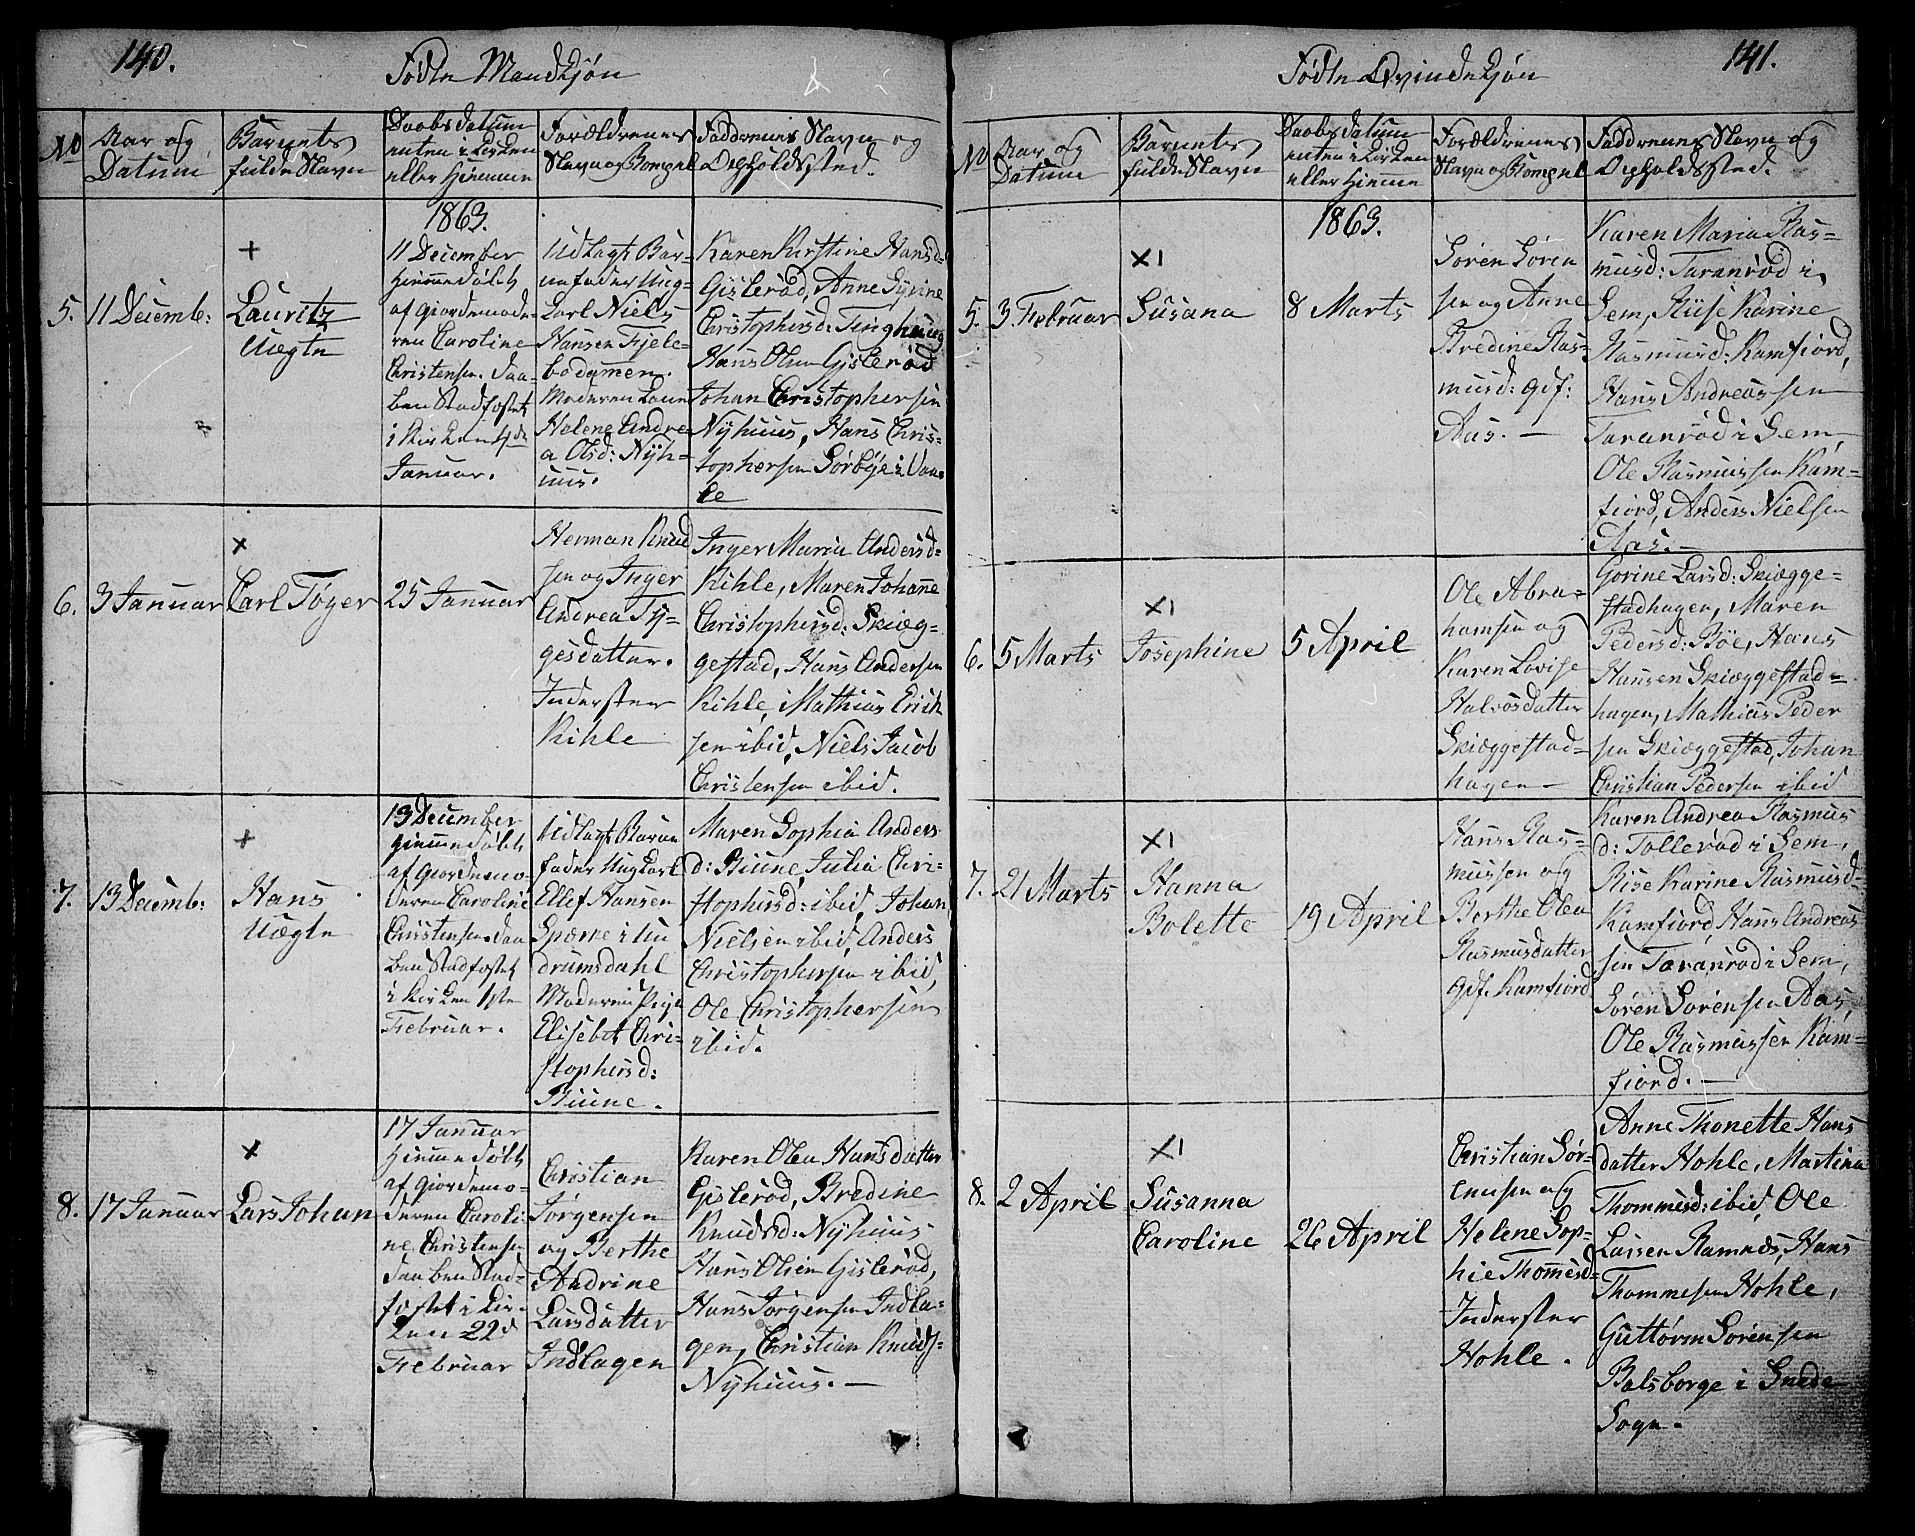 140.
Födte Mandkjön
No
Aar og
Datum
Barnets
fulde Navn
Daabs datum
enten i Kirken
eller Hiemme
Forældrenes
Navn og Bompel
Faddernes Navn og
Opholdssted.
1863.
5.
11 Decemb:
+
Lauritz
Uægte
11 December
hiemmedöbt
af giordemode-
ren Caroline
Christensen. Daa-
ben Stadfæstet
i Kirken 4de
Januar.
Udlagt Bar-
nefader Ung-
karl Niels
Hansen Fjele-
bodamen.
Moderen
Helene Andre-
a Olsd: Nyh-
uus.
Karen Kirstine Hansd-
Gisleröd, Anne Gurine
Christophersd: Tinghaug
Hans Olsen Gisleröd
Johan Christophersen
Nyhuus, Hans Chris-
tophersen Sörbÿe i Vaa-
le
6.
3 Januar
x
Carl Töger
25 Januar
Herman Knud
sen og Inger
Andrea Ty-
gesdatter.
Indersten
Kihle
Inger Maria Andersd-
Kihle, Maren Johanne
Christophersd: Skiæg-
gestad, Hans Andersen
Kihle, Mathias Erich
sen ibid, Niels Jacob
Christensen ibid.
7.
13 Decemb:
+
Hans
Uægte
13 December
hiemmedöbt
af giordemo-
deren Caroline
Christensen Daa
ben Stadfæstet
i Kirken 1ste
Februar.
Udlagt Barne
fader Ungkarl
Ellef Hansen
Sparre i Un
drumsdahl
Moderen Pige
Elisebet Chri-
stophersd:
Biune.
Maren Sophia Anders
d: Biune, Julia Chri-
stophersd: ibid, Johan
Nielsen ibid, Anders
Christophersen ibid,
Ole Christophersen
ibid.
8.
17 Januar
x
Lars Johan
17 Januar
hiemmedöbt
af giordemo-
deren Caroli-
ne Christensen
Daaben Stad-
fæstet i Kir-
ken 22d
Februar
Christian
Jörgensen
og Berthe
Andrine
Larsdatter
Indlagen
Karen Olea Hansdatter
Gisleröd, Bredine
Knudsd: Nyhuus
Hans Olsen Gisleröd,
Hans Jörgensen Indla-
gen, Christian Knuds-
Nyhuus. —
141.
Födte Qvindekjön
No
Aar og
Datum
Barnets
fulde Navn
Daabs datum
enten i Kirken
eller Hiemme
Forældrenes
Navn og Bompel
Faddernes Navn og
Opholdssted.
1863.
5.
3 Februar
x1
Susana
8 Marts
Sören Sören
sen og Anne
Bredine Ras-
musd: gdf:
Aas. —
Karen Maria Ras-
musd: Taranröd i
Sem, Riise Karine
Rasmusd: Kamfiord,
Hans Andreassen
Taranröd i Sem,
Ole Rasmussen Kam-
fiord, Anders Nielsen
Aas. —
6.
5 Marts
x1
Josephine
5 April
Ole Abra-
hamsen og
Karen Lovise
Halvorsdatter
Skiæggestad-
hagen —
Gorine Larsd: Skiægge-
stadhagen, Maren
Pedersd: Böe, Hans
Hansen Skiæggestad-
hagen, Mathias Peder
sen Skiæggestad, Johan
Christian Pedersen ibid
7.
21 Marts
x1
Hanna
Bolette
19 April
Hans Ras-
mussen og
Berthe Olea
Rasmusdatter
gdf. Kamfiord
Karen Andrea Rasmus
d: Tolleröd i Sem,
Rise Karine Rasmusd-
Kamfiord, Hans Andreas
sen Taranröd i Sem,
Sören Sörensen Aas,
Ole Rasmussen Kam-
fiord. —
8.
2 April
x1
Susanna
Caroline
26 April
Christian Sör-
ensen og
Helene Sop-
hie Thomesd-
Inderster
Hohle.
Anne Thonette Hans
datter Hohle, Martina
Thommesd: ibid, Ole
Larsen Ramnes, Hans
Thommesen Hohle,
Guttorm Sörensen
Balsborge i
Sogn.